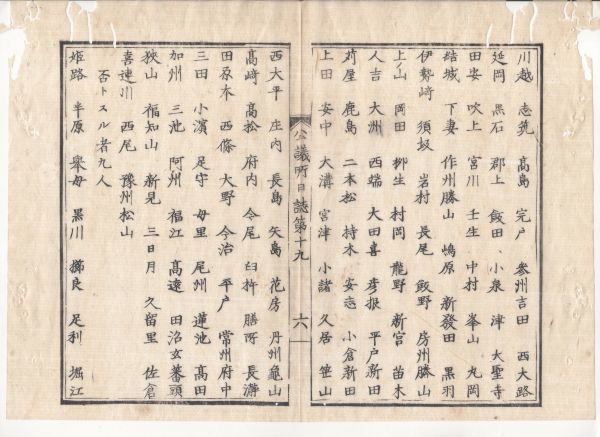 川越 志筑 高島 完戸 参州吉田 西大路
延岡 黒石 郡上 飯田 小泉 津 大聖寺
田安 吹上 宮川 壬生 中村 峯山 丸岡
結城 下妻 作州勝山 嶋原 新發田 黒羽
伊勢崎 須坂 岩村 長尾 飯野 房州勝山
上ノ山 岡田 柳生 村岡 龍野 新宮 苗木
人吉 大洲 西端 大田喜 彦根 平戸新田
苅屋 鹿島 二本松 持木 安志 小倉新田
上田 安中 大溝 宮津 小諸 久居 笹山
公議所日誌第十九 六
西大平 庄内 長島 矢島 花房 丹州龜山
高崎 高松 府内 今尾 臼杵 膳所 長瀞
田原本 西條 大野 今治 平戸 常州府中
三田 小濱 足守 母里 尾州 蓮池 高田
加州 三池 阿州 福江 高遠 田沼玄蕃頭
狭山 福知山 新見 三日月 久留里 佐倉
喜連川 西尾 豫州松山
否トスル者九人
姫路 半原 擧母 黒川 櫛良 足利 堀江